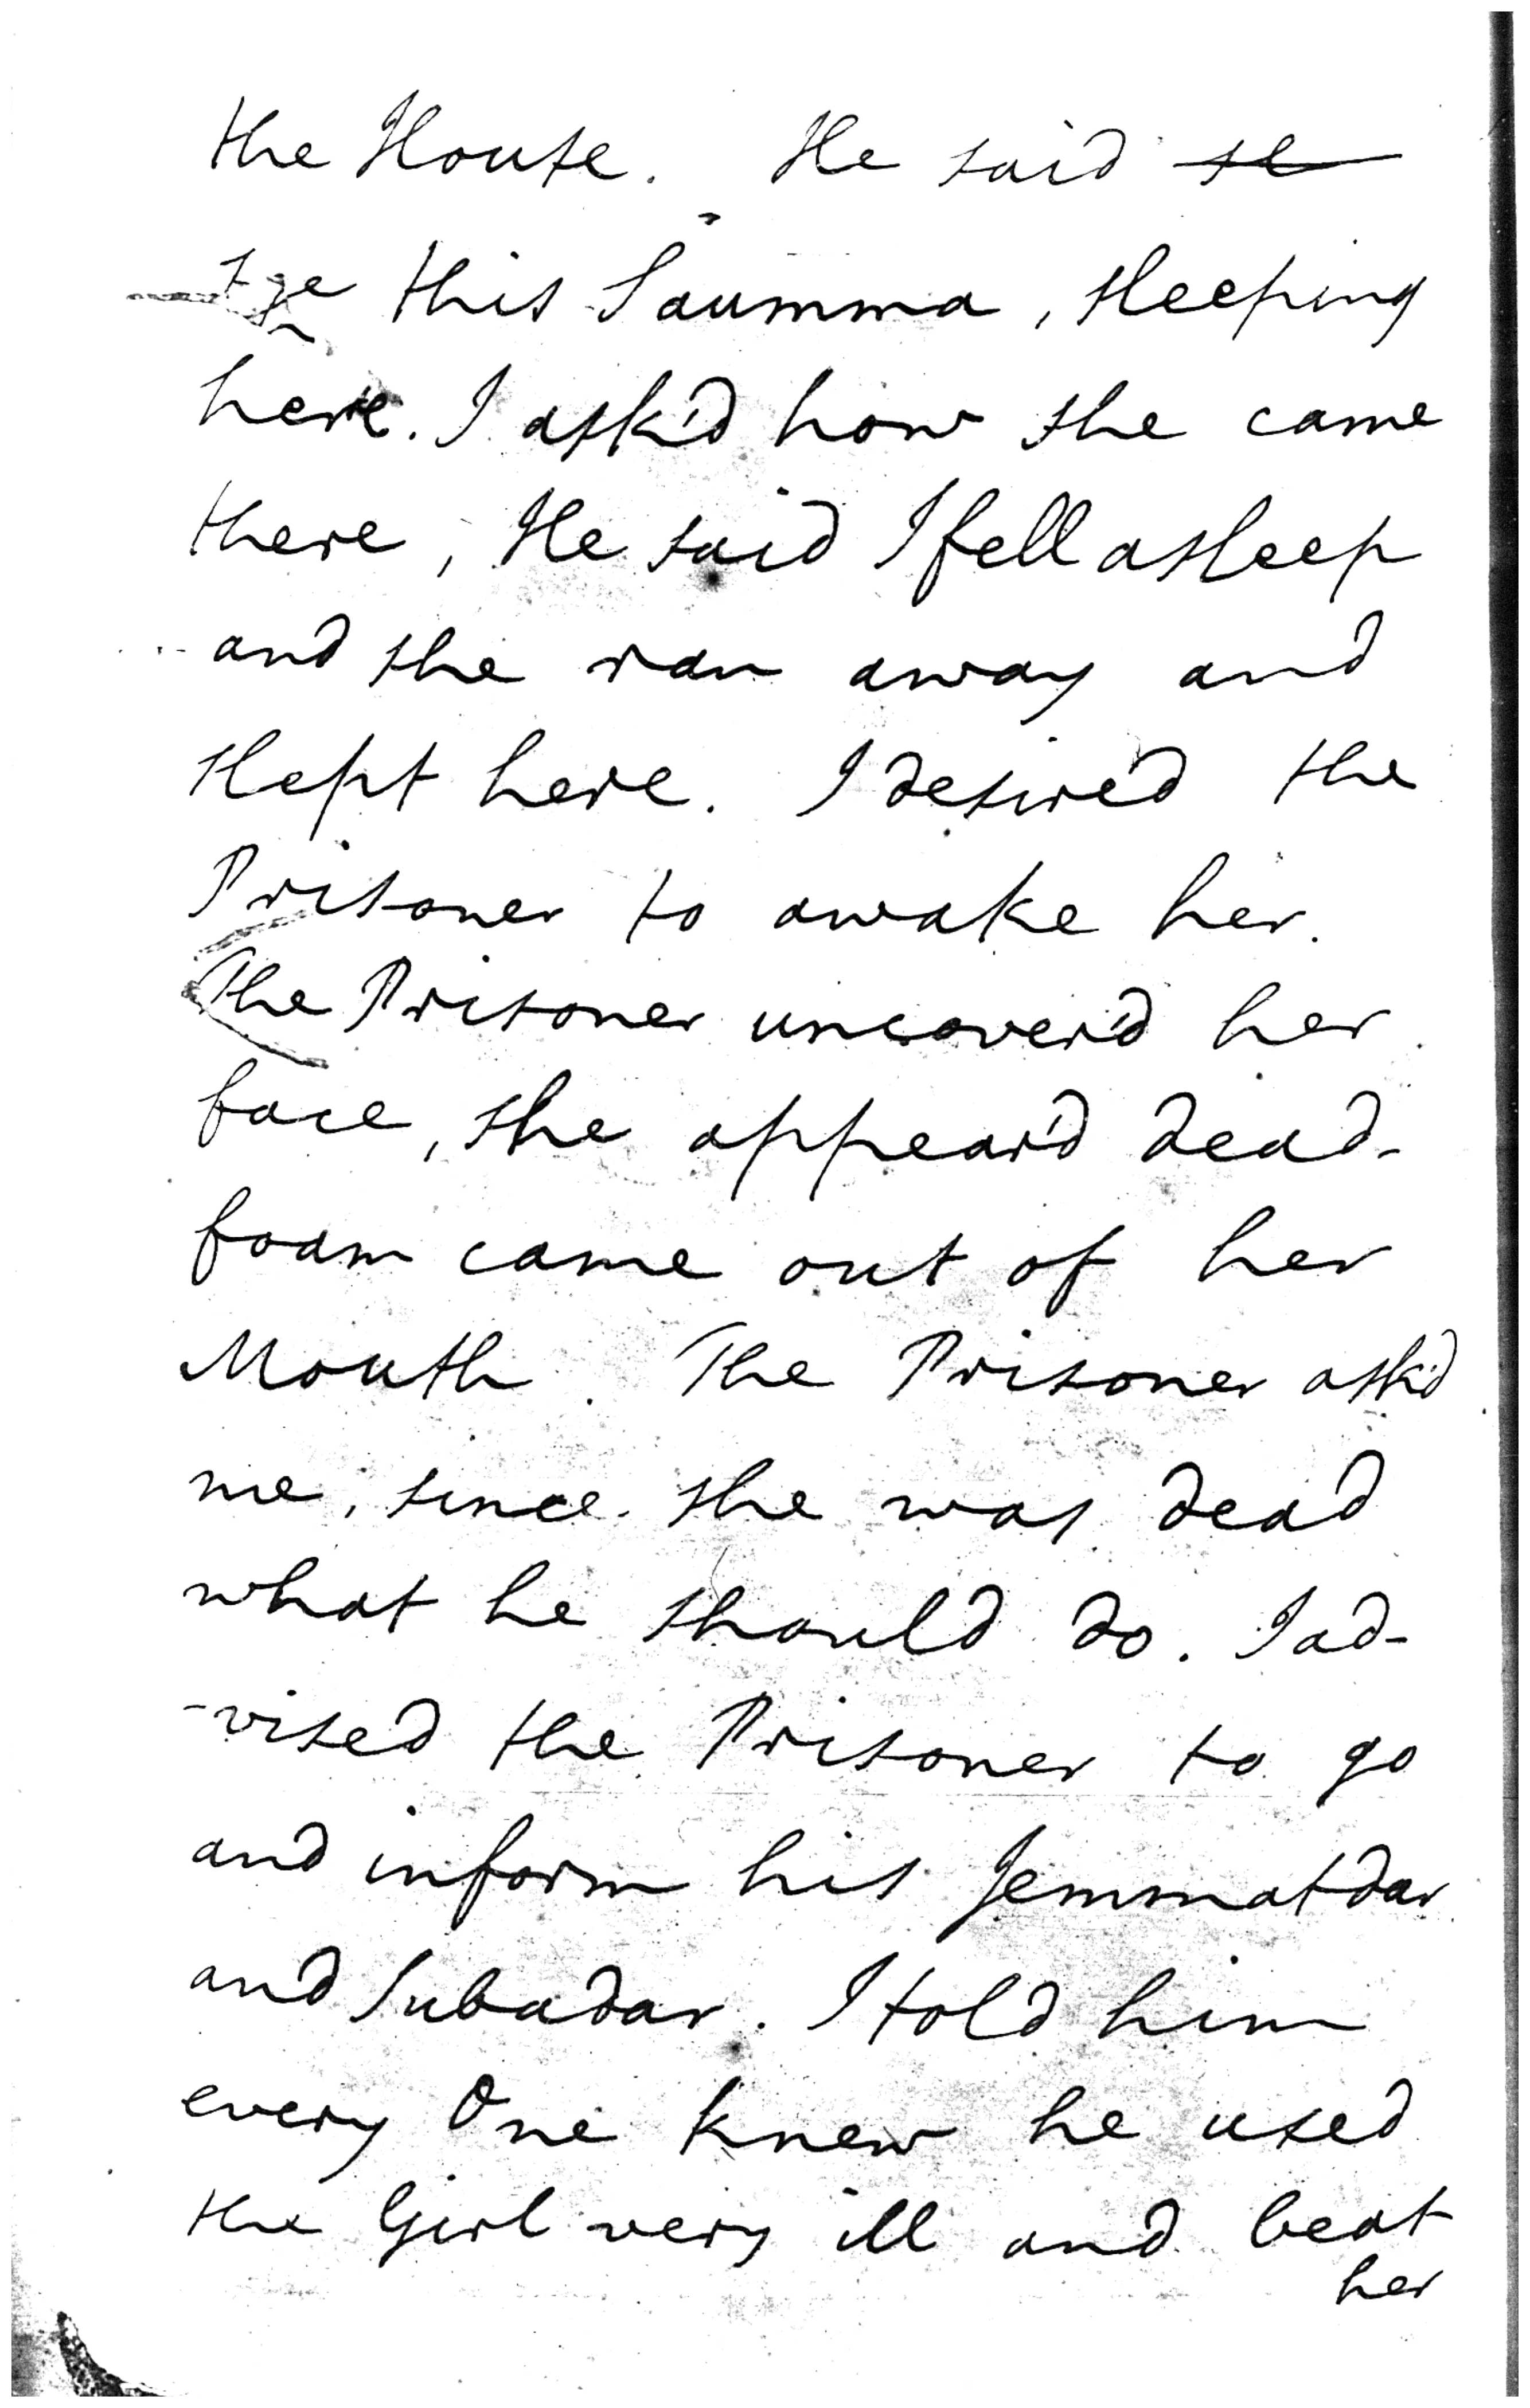 the House. He said se
see this Saumma, sleeping
here. I ask'd how she came
there, He said I fell asleep
and she ran away and
slept here. I desired the
Prisoner to awake her.
The Prisoner uncover'd her
face, she appear'd dead-
foam came out of her
Mouth. The Prisoner ask'd
me, since she was dead
what he should do. I ad-
-vised the Prisoner to go
and inform his Jemmatdar
and Subadar. I told him
every One knew he used
the Girl very ill and beat
her